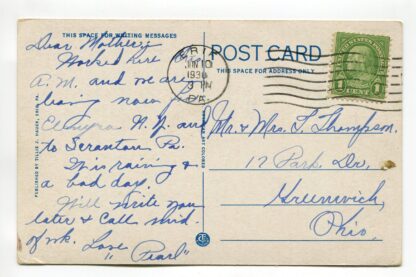 THIS SPACE FOR WRITING MESSAGES
Dear Mother,
Worked here
A.M. and we are
leaving now
Elmyra N.Y. and
to Scranton Pa.
This raining &
a bad day.
Will write you
later & call mid.
of wk. Love
"Pearl"
PUBLISHED BY TILLIE J. HAUCK, ERIE, PA.
ERIE
JUN 10
3 PM
1936
PA.
POST CARD
THIS SPACE FOR ADDRESS ONLY
1 CENT 1
Mr. & Mrs. T. Thompson.
12 Park Dr,
Greenwich,
Ohio.